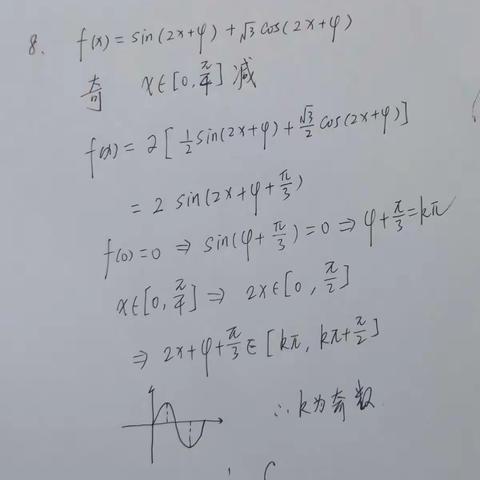 8. f(x) = sin(2x+φ) + √3 cos(2x+φ)
奇 x∈[0, π/4] 减
f(x) = 2[1/2 sin(2x+φ) + √3/2 cos(2x+φ)]
= 2 sin(2x+φ+π/3)
f(0)=0 ⇒ sin(φ+π/3)=0 ⇒ φ+π/3=kπ
x∈[0, π/4] ⇒ 2x∈[0, π/2]
⇒ 2x+φ+π/3 ∈ [kπ, kπ+π/2]
∴ k为奇数